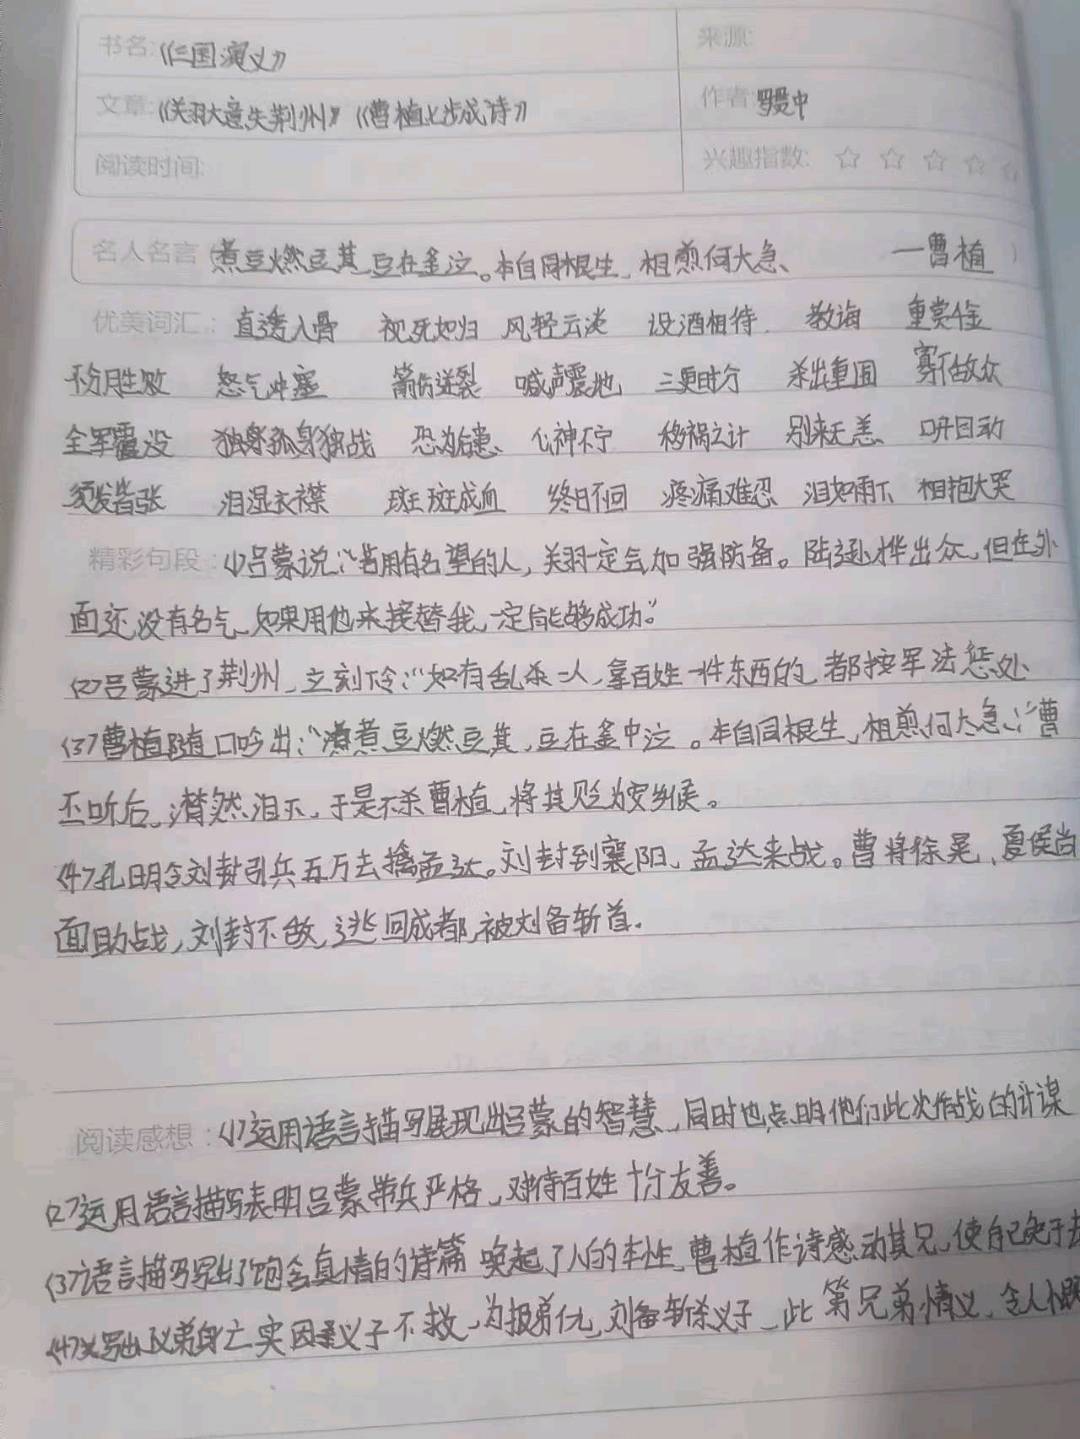 书名:《三国演义》 来源:
文章:《关羽大意失荆州》《曹植七步成诗》 作者:罗贯中
阅读时间: 兴趣指数: ☆ ☆ ☆ ☆ ☆
名人名言(煮豆燃豆萁,豆在釜泣。本自同根生,相煎何太急、 —曹植)
优美词汇: 直透入骨 视死如归 风轻云淡 设酒相待 教诲 重赏千金
不分胜败 怒气冲塞 箭伤迸裂 喊声震地 三更时分 杀出重围 寡不敌众
全军覆没 孤身独战 恐为后患 心神不宁 移祸之计 别来无恙 口开目动
须发皆张 泪湿衣襟 斑斑成血 终日不回 疼痛难忍 泪如雨下 相抱大哭
精彩句段:(1)吕蒙说:“若用有名望的人,关羽一定会加强防备。陆逊才华出众,但在外
面还没有名气,如果用他来接替我,一定能够成功.”
(2)吕蒙进了荆州,立刻下令:“如有乱杀一人,拿百姓一件东西的,都按军法惩处
(3)曹植随口吟出:“煮豆燃豆萁,豆在釜中泣。本自同根生,相煎何太急;”曹
丕听后,潸然泪下,于是不杀曹植,将其贬为安乡侯。
(4)孔明令刘封引兵五万去擒孟达。刘封到襄阳,孟达来战。曹将徐晃、夏侯尚
面助战,刘封不敌,逃回成都,被刘备斩首.
阅读感想:(1)运用语言描写展现出吕蒙的智慧,同时也点明他们此次作战的计谋
(2)运用语言描写表明吕蒙带兵严格,对待百姓十分友善。
(3)语言描写写出了饱含真情的诗篇唤起了人的本性,曹植作诗感动其兄,使自己免于
(4)写出义弟身亡实因义子不救,为报弟仇,刘备斩杀义子,此第兄弟情义,令人